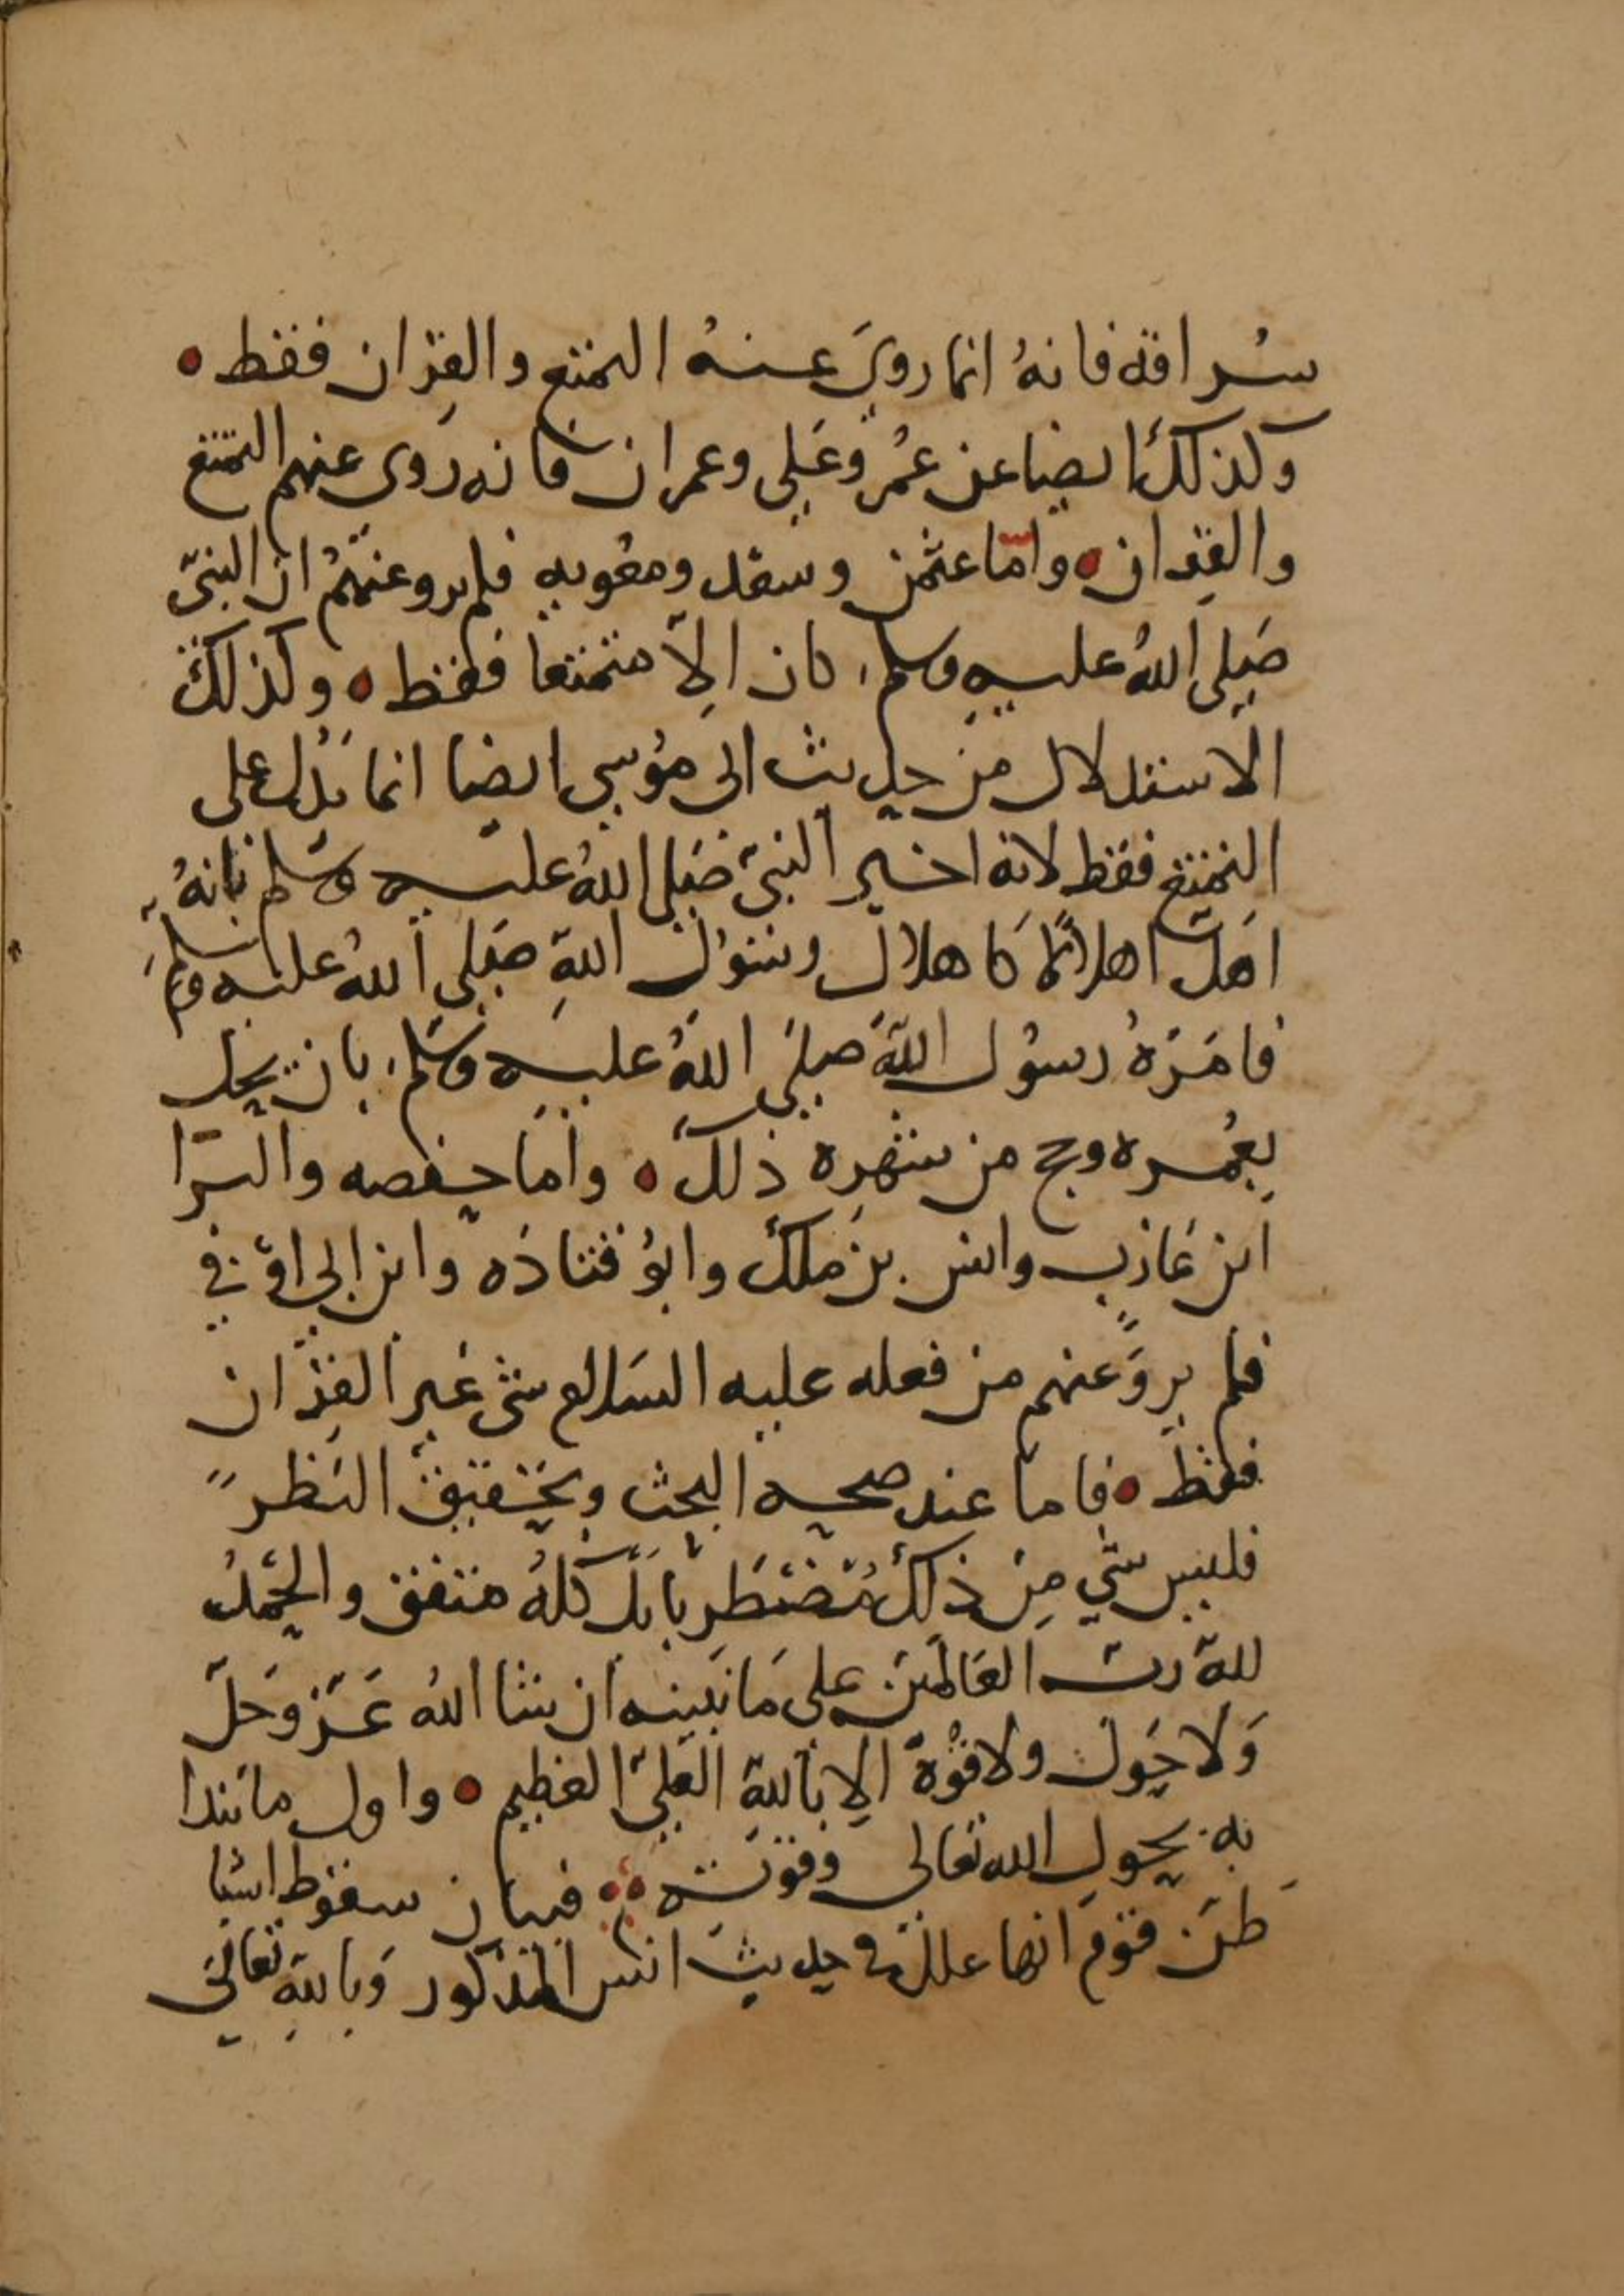 سُراقه فانهُ انما رويَ عنهُ التمتع والقِران فقط ٥
وكذلك ايضا عن عُمر وعَلي وعمران فانه روى عنهم التمتع
والقِران ٥ وامّا عثمن وسعد ومعُويه فلم يرو عنهمُ ان النبيّ
صَلى اللهُ عليه وسلم كان اِلاّ متمتعا فقط ٥ وكذلك
الاستدلال من حديث ابى مُوسى ايضا انما يَدُل على
التمتع فقط لانه اخبر النبيّ صَلى اللهُ عليه وسَلم بانهُ
اهَلّ اهلالًا كاهلال رسُول اللهِ صَلى اللهُ عليه وسلم
فامَرَهُ رسُول اللهِ صلىَ اللهُ عليه وسَلم بان يحل
بعُمره وحج من شهرِه ذلك ٥ وامَا حفصه والبَرا
ابن عَازب وانس بن مَلك وابوُ قتادَه وابن ابي اوفي
فلم يروَ عنهم من فعله عليه السَلام شى غَير القِرَان
فقط ٥ فاما عند صحه البحث وتحقيق النَظر
فليس شي مِن ذلك مُضطَرِبا بَل كلهُ متفق والحَمدُ
للهِ ربّ العَالمَين على مَا نَبينه ان شا اللهُ عَزّ وَجَلّ
وَلا حَول ولا قُوْةَ اِلا بَاللهِ العَليّ العَظيم ٥ واول ما نَبدا
به بحول الله تعَالى وقوته ٥ فبيان سقوط اشيا
ظَن قوَم انها علل في حديث انس المذكور وَباللهِ تعالىَ